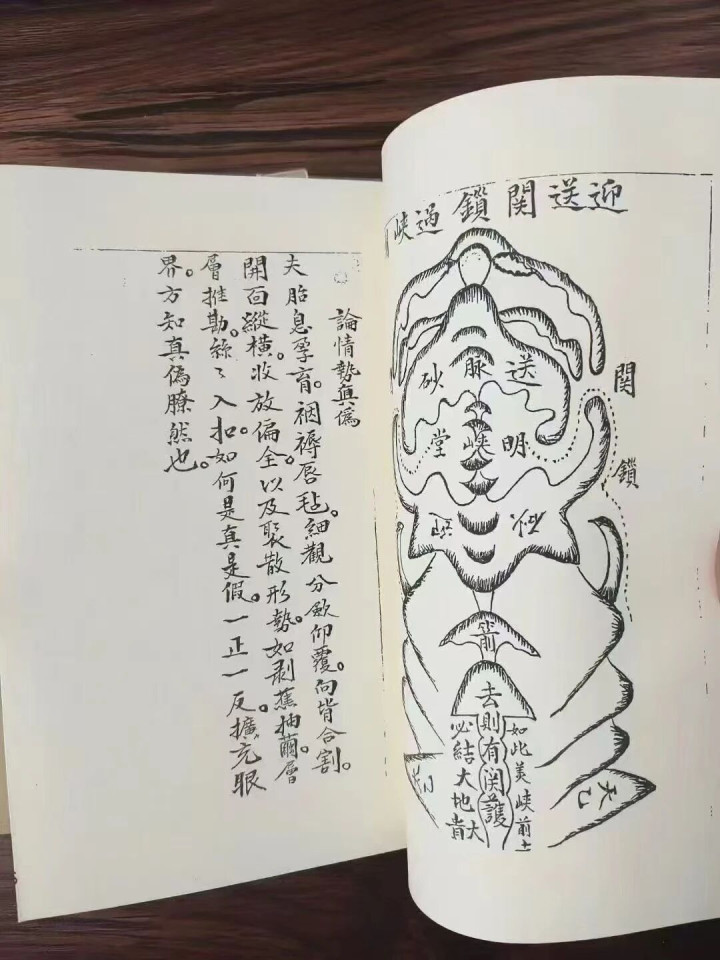 迎送関鎖過峽
送脈砂
明峽堂
関鎖
砂
箭
如此美峽前
去則有関護
必結大地
大貴
天乙
論情勢真偽
夫胎息孕育。裀褥唇毡。細觀分歛仰覆。向背合割。
開面縱橫。收放偏全。以及聚散形勢。如剥蕉抽繭。層
層推勘。絲〻入扣。如何是真是假。一正一反。擴充眼
界。方知真偽瞭然也。